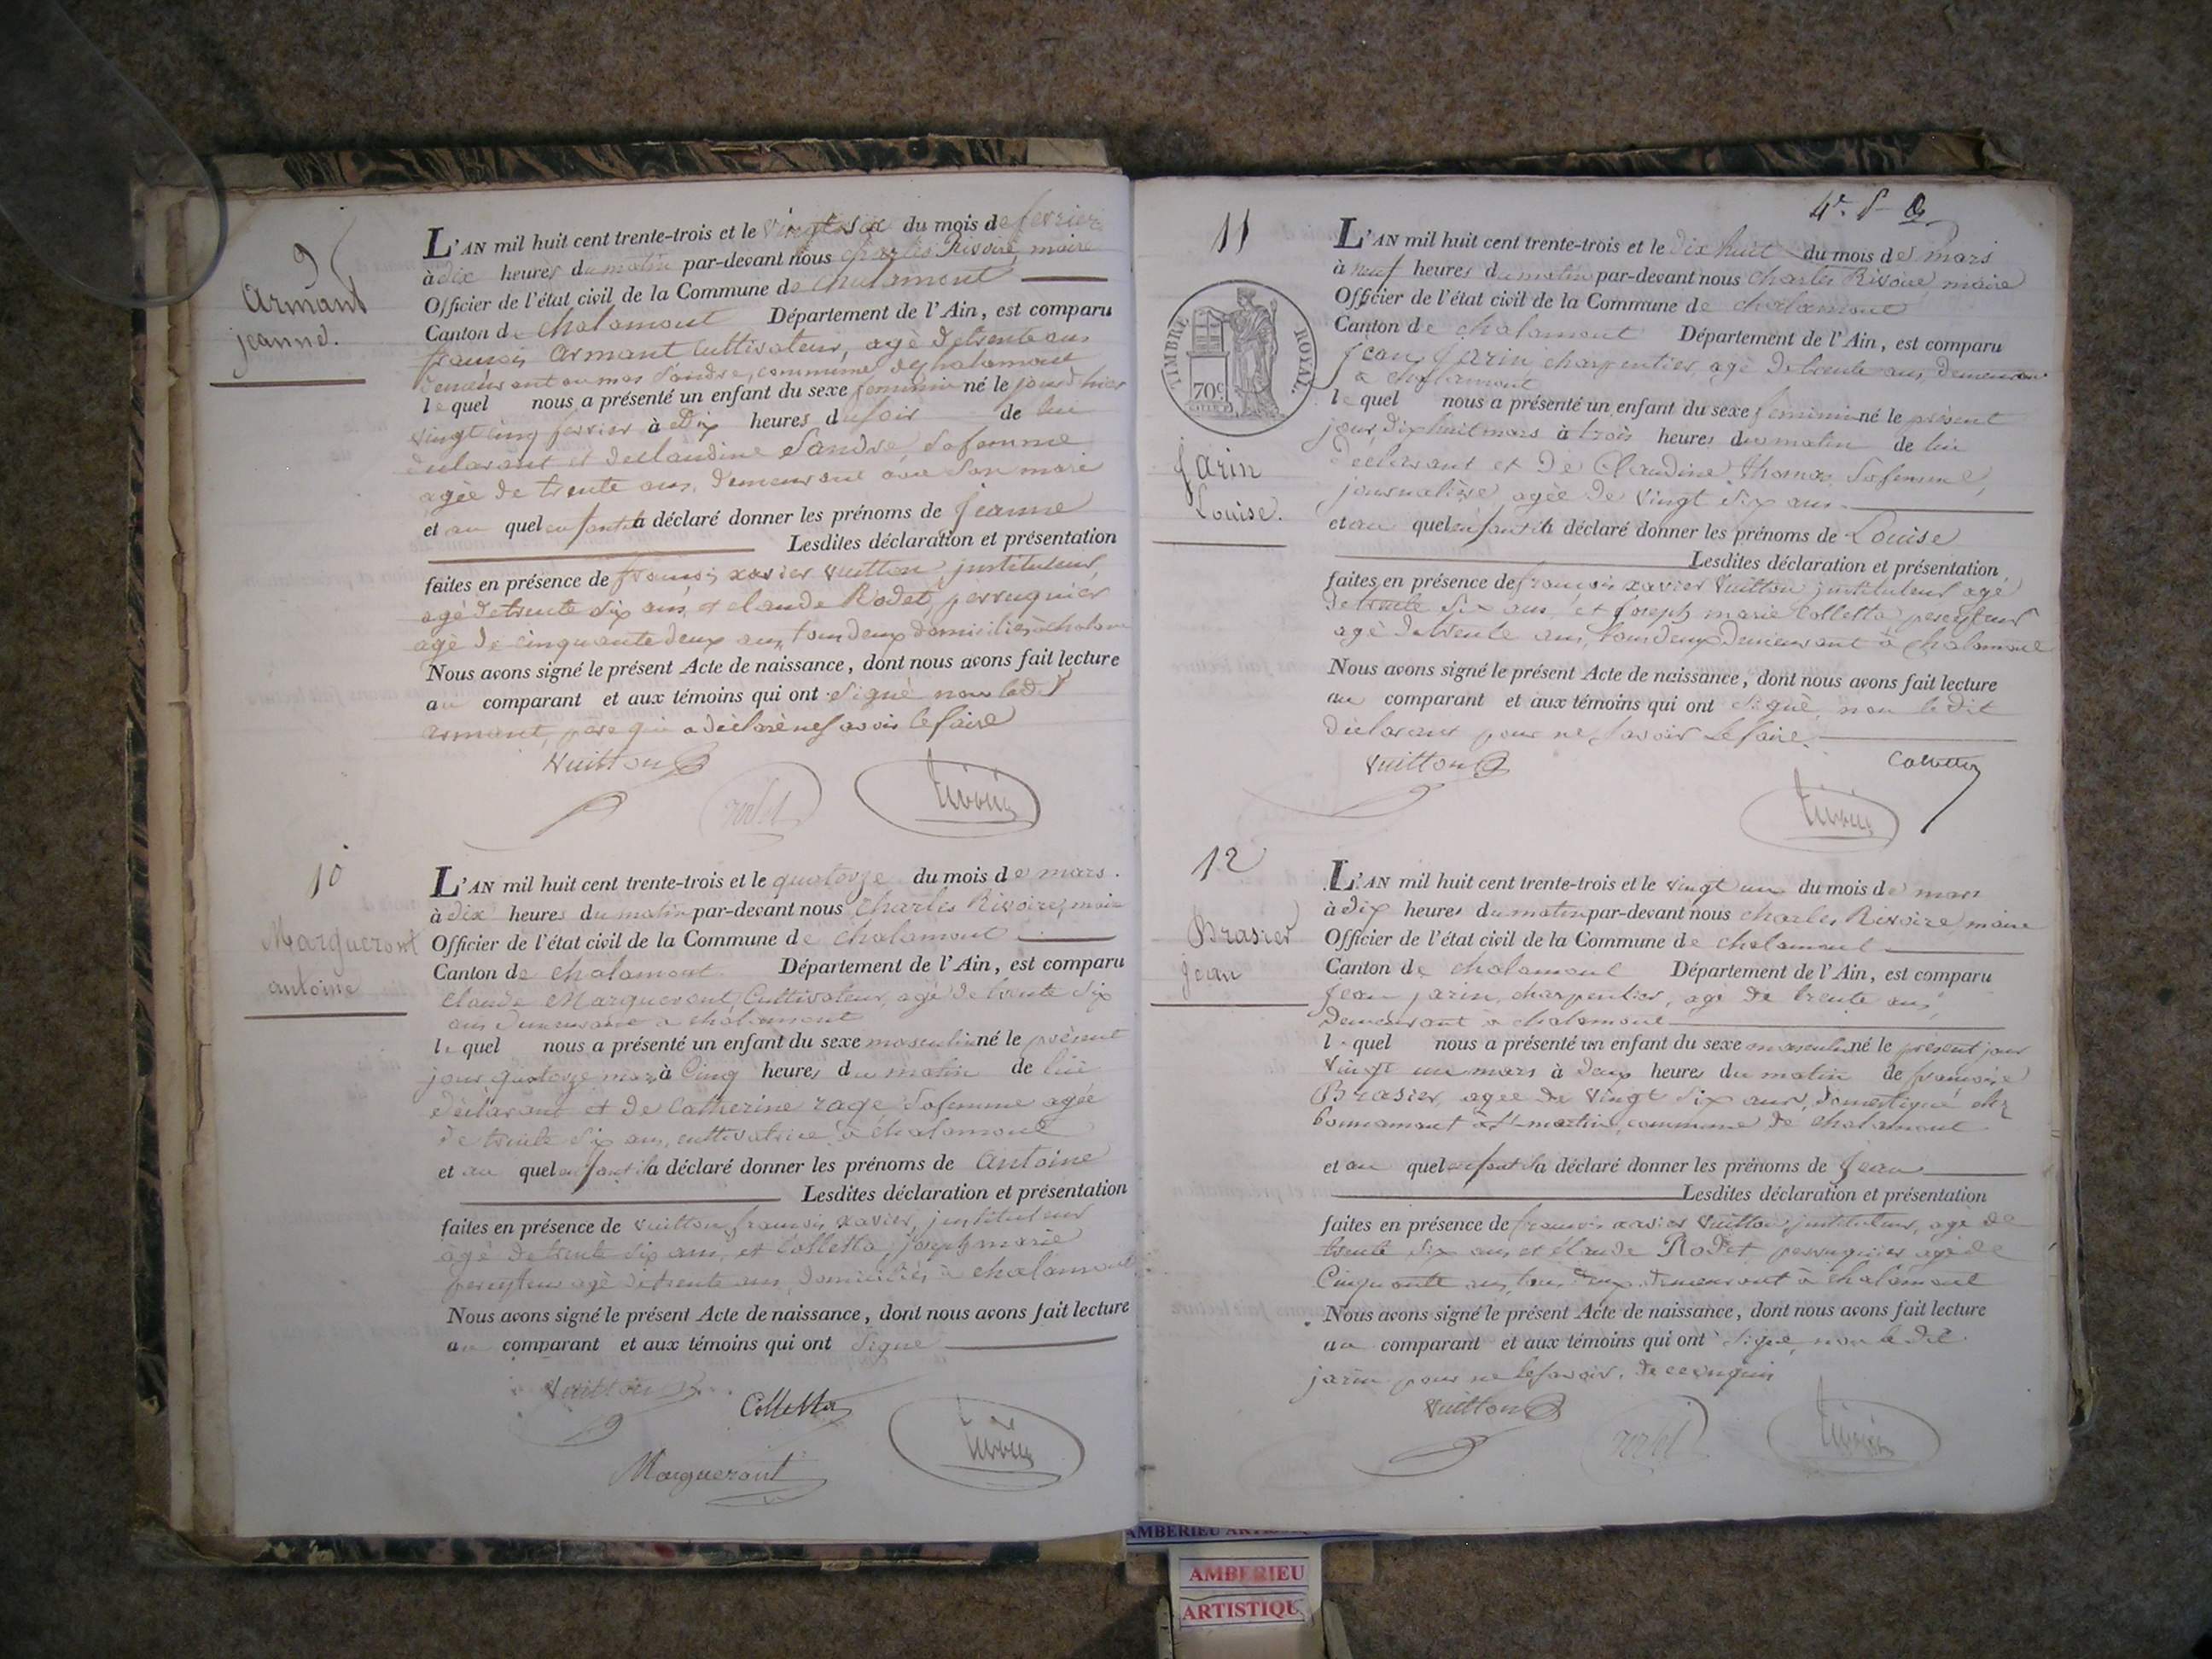 9
Armant
jeanne.
L'AN mil huit cent trente-trois et le vingt six du mois de fevrier
à dix heures du matin par-devant nous charles Rivoire, maire
Officier de l'état civil de la Commune de chalamont
Canton de chalamont Département de l'Ain, est comparu
françois armant cultivateur, agé de trente ans
demeurant au mas Sandre, commune de chalamont
lequel nous a présenté un enfant du sexe feminin né le jour d'hier
vingt cinq fevrier à Dix heures du soir de lui
declarant et de claudine Sandre sa femme
agée de trente ans, demeurant avec son mari
et au quel enfant il a déclaré donner les prénoms de jeanne
Lesdites déclaration et présentation
faites en présence de françois xavier vuitton instituteur,
agé de trente six ans, et claude Rodet, perruquier
agé de cinquante deux ans, tous deux domiciliés à chalam
Nous avons signé le présent Acte de naissance, dont nous avons fait lecture
au comparant et aux témoins qui ont signé non ledit
armant, père qui a déclaré ne savoir le faire
Vuitton
rodet
Rivoire
10
Margueront
antoine
L'AN mil huit cent trente-trois et le quatorze du mois de mars.
à dix heures du matin par-devant nous Charles Rivoire, maire
Officier de l'état civil de la Commune de chalamont
Canton de chalamont Département de l'Ain, est comparu
claude Margueront Cultivateur, agé de trente six
ans demeurant a chalamont
lequel nous a présenté un enfant du sexe masculin né le présent
jour quatorze mars à Cinq heures du matin de lui
déclarant et de Catherine rage sa femme agée
de trente six ans, cultivatrice à chalamont
et au quel enfant il a déclaré donner les prénoms de Antoine
Lesdites déclaration et présentation
faites en présence de vuitton françois xavier, instituteur
agé de trente six ans, et Colletta, joseph marie
percepteur agé de trente ans, domiciliés à chalamont
Nous avons signé le présent Acte de naissance, dont nous avons fait lecture
au comparant et aux témoins qui ont signé
Vuitton
Colletta
Rivoire
Margueront
11
TIMBRE ROYAL
70c
Jarin
Louise.
L'AN mil huit cent trente-trois et le dix huit du mois de mars
à neuf heures du matin par-devant nous Charles Rivoire, maire
Officier de l'état civil de la Commune de chalamont
Canton de chalamont Département de l'Ain, est comparu
Jean Jarin, charpentier, agé de trente ans, demeurant
a chalamont
lequel nous a présenté un enfant du sexe féminin né le présent
jour, dix huit mars à trois heures du matin de lui
Déclarant et de Claudine thomas, sa femme,
journalière, agée de vingt six ans.
et au quel enfant il a déclaré donner les prénoms de Louise
Lesdites déclaration et présentation
faites en présence de françois xavier Vuitton instituteur agé
de trente six ans et joseph marie Colletta percepteur
agé de trente ans, tous deux demeurant à chalamont
Nous avons signé le présent Acte de naissance, dont nous avons fait lecture
au comparant et aux témoins qui ont signé, non ledit
déclarant pour ne savoir le faire.
Vuitton
Colletta
Rivoire
12
Brasier
jean
L'AN mil huit cent trente-trois et le vingt un du mois de mars
à dix heures du matin par-devant nous charles Rivoire maire
Officier de l'état civil de la Commune de chalamont
Canton de chalamont Département de l'Ain, est comparu
Jean jarin, charpentier, agé de trente ans,
Demeurant à chalamont
lequel nous a présenté un enfant du sexe masculin né le présent jour
vingt un mars à deux heures du matin de françoise
Brasier, agée de vingt six ans, domestique chez
bonnamont à St martin, commune de chalamont
et au quel enfant il a déclaré donner les prénoms de Jean
Lesdites déclaration et présentation
faites en présence de françois xavier Vuitton, instituteur, agé de
trente six ans et claude Rodet perruquier agé de
Cinquante ans, tous deux demeurant à chalamont
Nous avons signé le présent Acte de naissance, dont nous avons fait lecture
au comparant et aux témoins qui ont signé, non le dit
jarin pour ne le savoir, de ce enquis
Vuitton
rodet
Rivoire
AMBERIEU
ARTISTIQUE